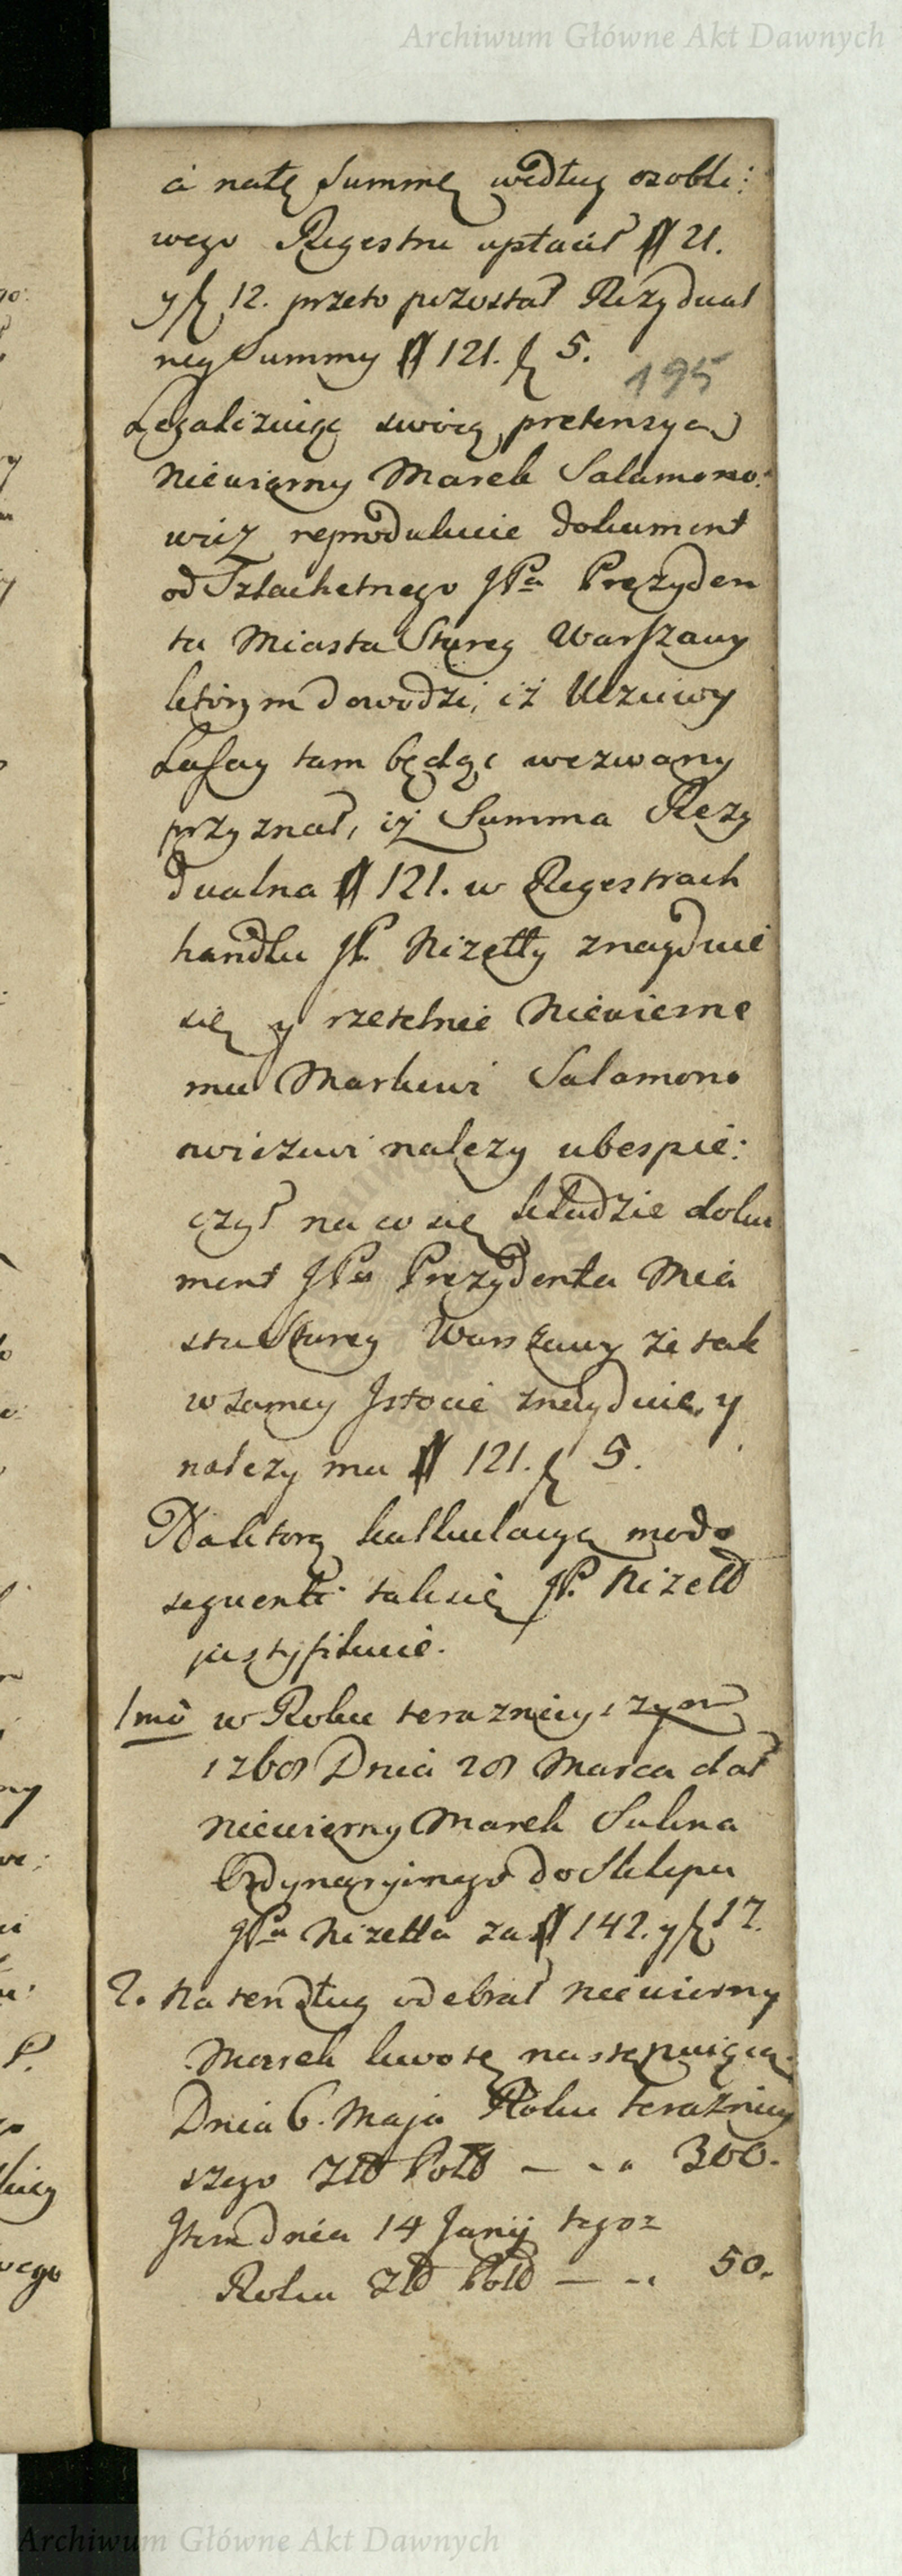 Archiwum Główne Akt Dawnych
a na tę Summę według osobli:
wego Regestru upłacił # 21.
y ſ 12. przeto pozostał Rezydual
ney Summy # 121. ſ 5.
195
Legalizuiąc swoią pretensyą
Niewierny Marek Salamono:
wicz reprodukuie dokument
od Szlachetnego JPa Prezyden
ta Miasta Starey Warszawy
którym dowodzi, iż Uczciwy
tam będąc wezwany
przyznał, iż Summa Rezy
dualna # 121. w Regestrach
handlu JP. Nizetty znayduie
się y rzetelnie Niewierne
mu Markowi Salamono
wiczowi należy ubespie:
czył na co się kładzie doku
ment JPa Prezydenta Mia
sta Starey Warszawy że tak
w samey Istocie znayduie, y
należy mu # 121. ſ 5.
Na ktorą kalkulacyą modo
sequenti tak się JP. Nizett
justyfikuie.
1mo w Roku teraznieyszym
1768 Dnia 28 Marca dał
Niewierny Marek Sukna
Ordynaryinego do Sklepu
JPa Nizetta za # 142. y ſ 17.
2. Na ten dług odebrał niewierny
Marek kwotę następuiącą.
Dnia 6. Maja Roku teraźniey
szego Zło Polo — „ 300.
Item dnia 14 Junij tegoz
Roku Zło Polo — „ 50.
Archiwum Główne Akt Dawnych